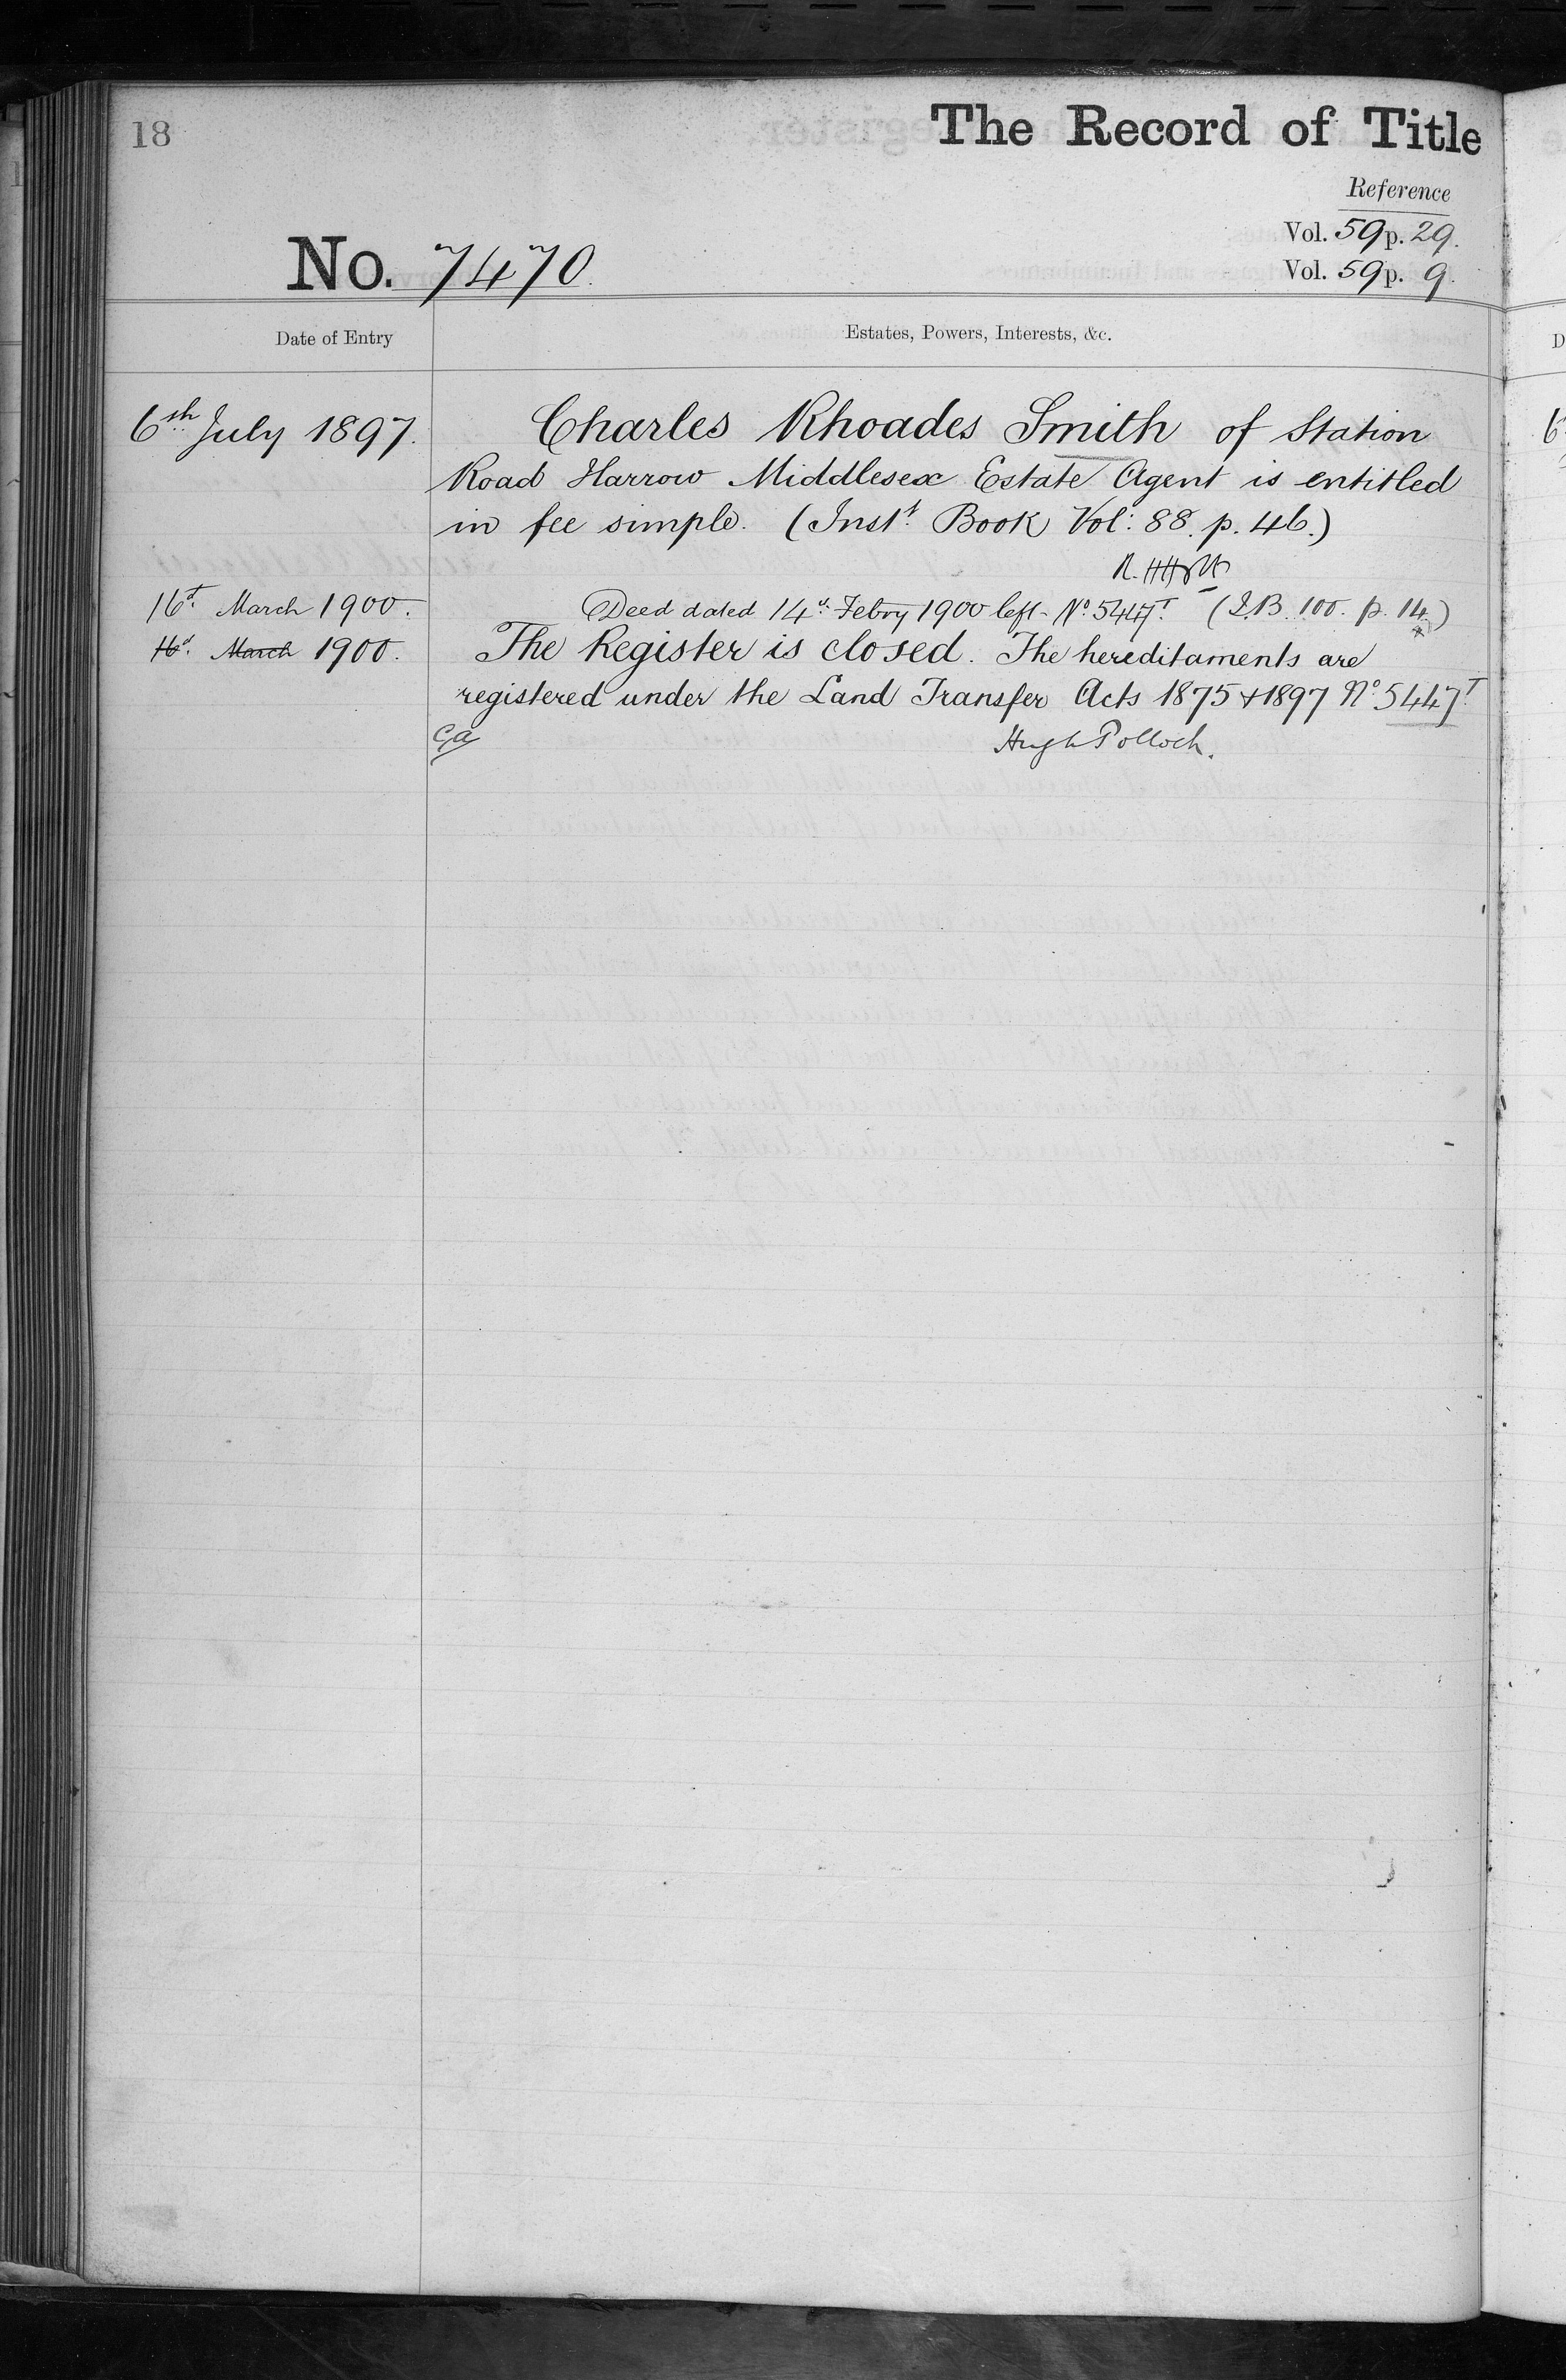 18
The Record of Title
Reference
Vol. 59 p. 29.
No. 7470.
Vol. 59 p. 9.
Date of Entry
Estates, Powers, Interests, &c.
6th July 1897.
Charles Rhoades Smith of Station
Road Harrow Middlesex Estate Agent is entitled
in fee simple. (Inst. Book Vol: 88. p. 46.)
16th March 1900.
Deed dated 14th Febry 1900 left - No. 5447T (I.B. 100. p. 14)
16th March 1900.
The Register is closed. The hereditaments are
registered under the Land Transfer Acts 1875 & 1897 No. 5447T
Hugh Pollock.